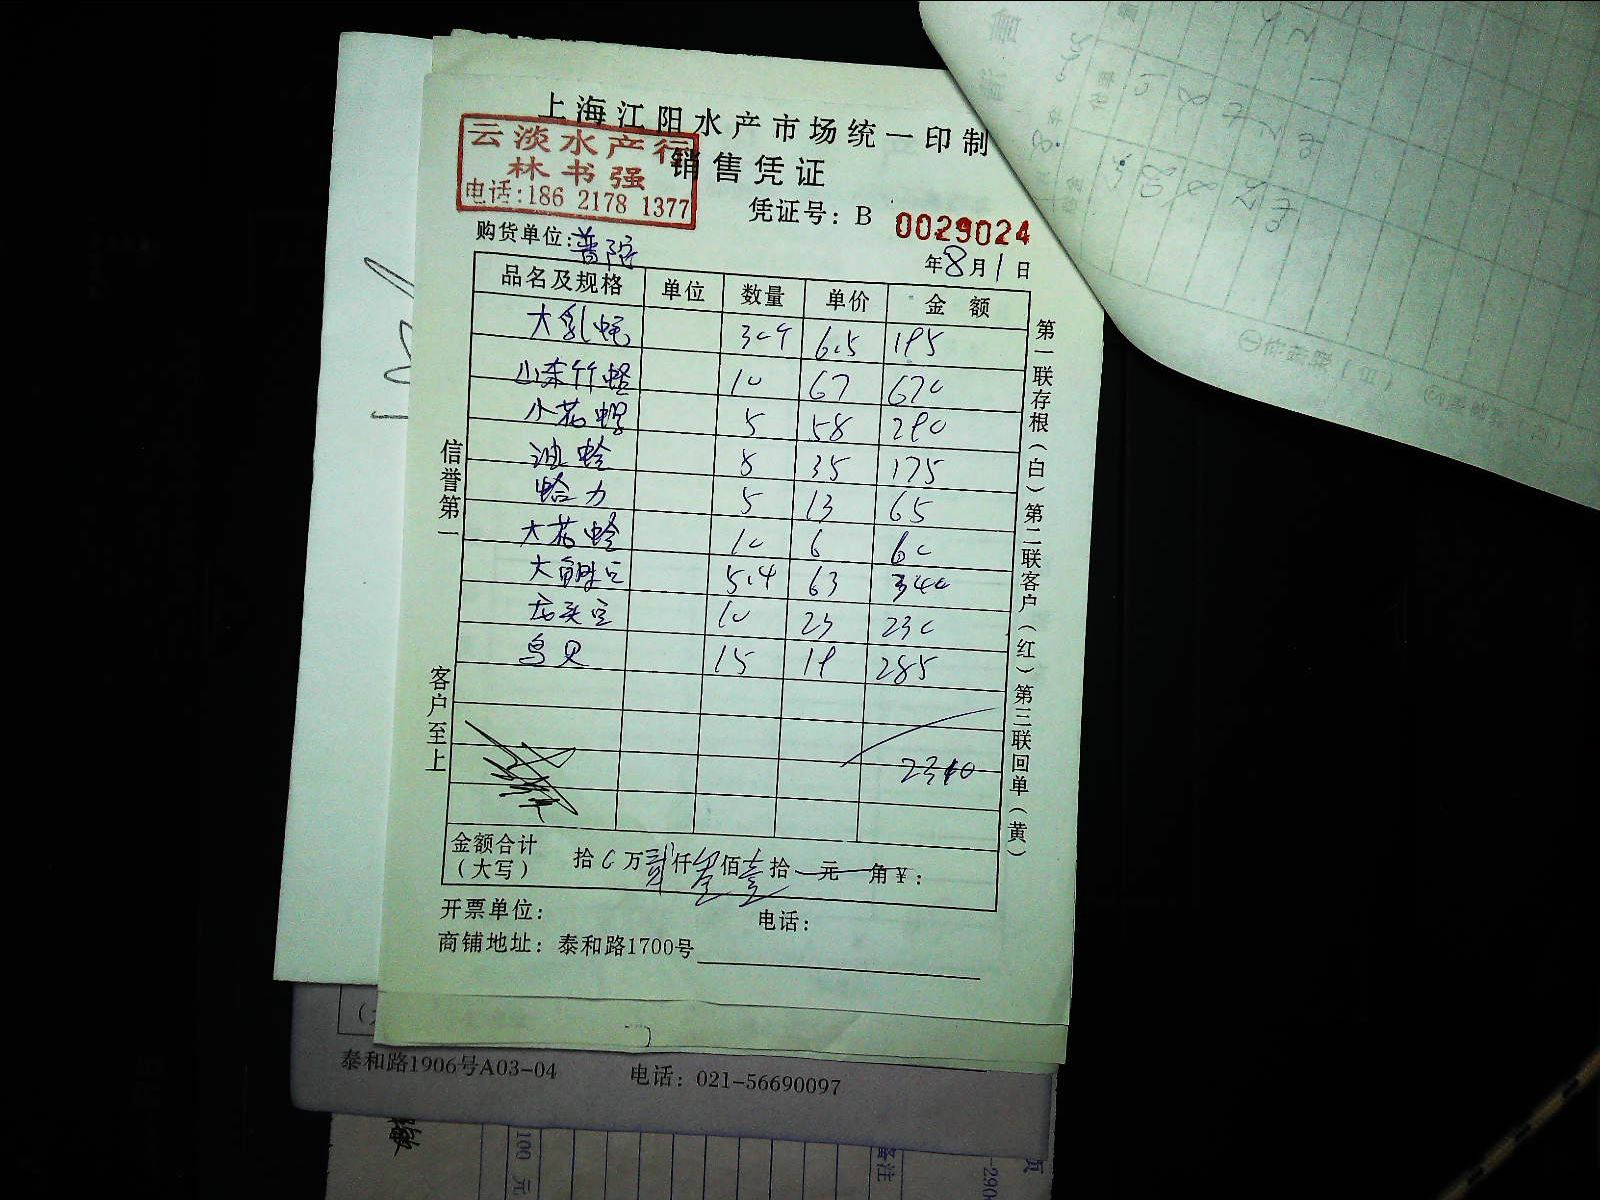 上海江阳水产市场统一印制
云淡水产行
林书强
电话:186 2178 1377
销售凭证
凭证号: B 0029024
购货单位:普陀
年8月1日
品名及规格 单位 数量 单价 金额
大乳蚝 6.5 195
山东竹蛏 10 67 670
小花螺 5 58 290
油蛤 5 35 175
蛤力 5 13 65
大花蛤 10 6 60
5.4 63 340
10 23 230
鸟贝 15 19 285
2310
金额合计
(大写) 拾0万贰仟叁佰壹拾元角¥:
开票单位: 电话:
商铺地址: 泰和路1700号
信誉第一
客户至上
第一联存根(白)第二联客户(红)第三联回单(黄)
泰和路1906号A03-04 电话: 021-56690097
100 元
备注